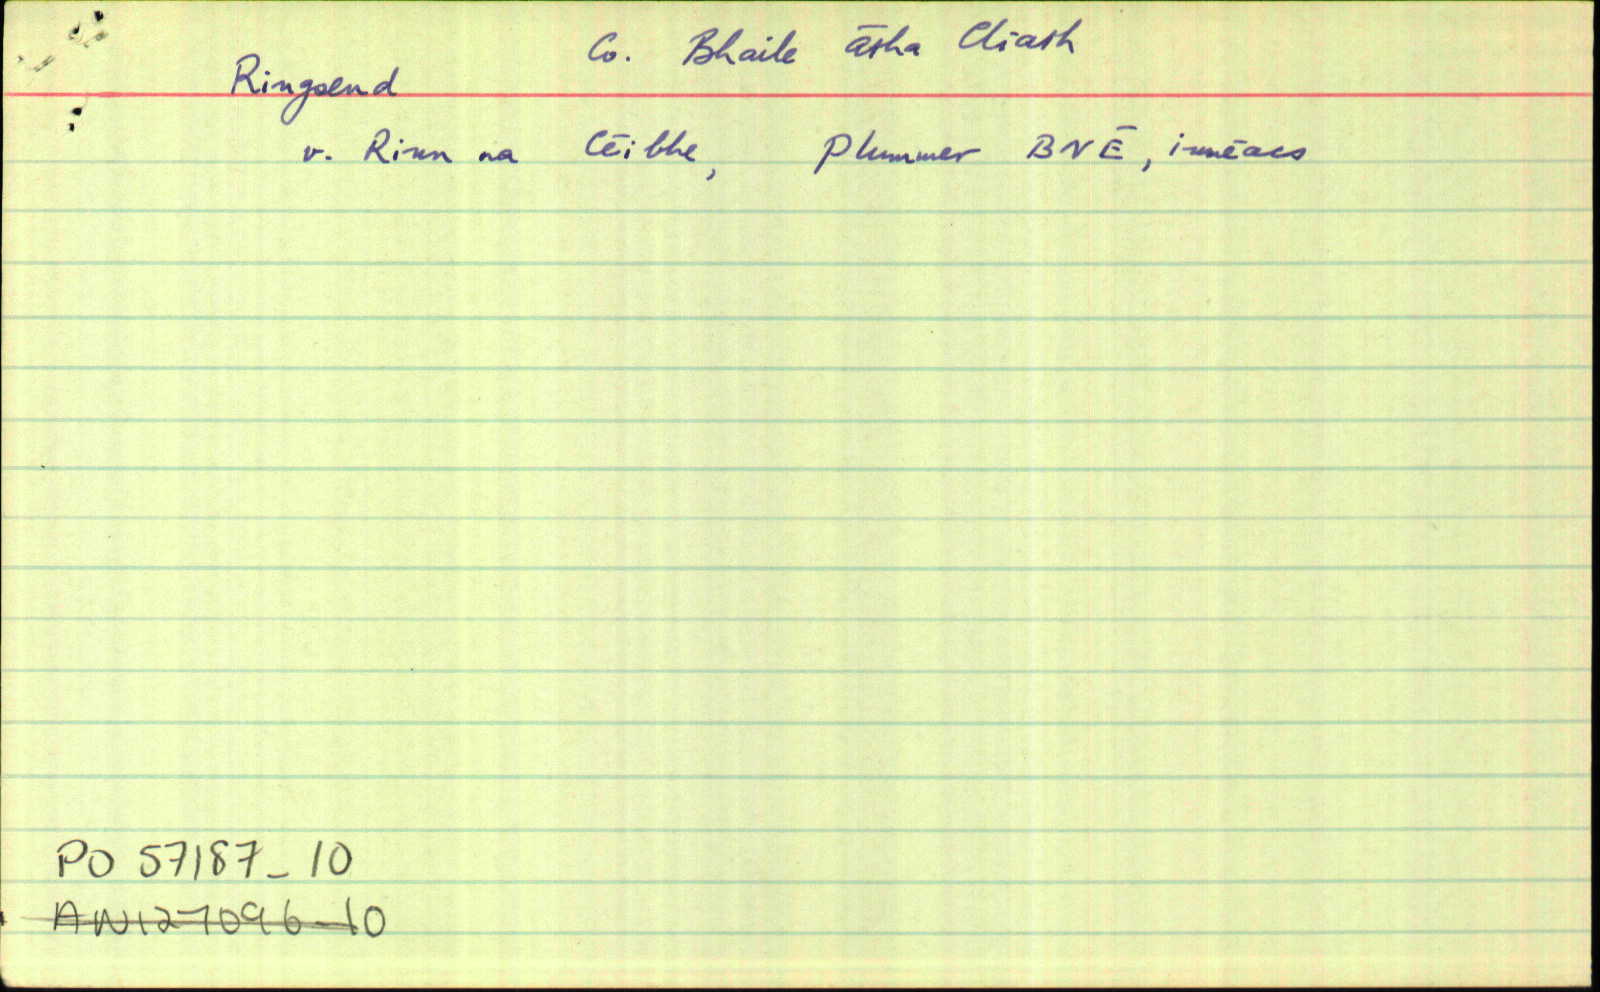 Co. Bhaile Átha Cliath
Ringsend
v. Rinn na Céibhe, Plummer BNÉ, innéacs
PO 57187_10
AN127096_10